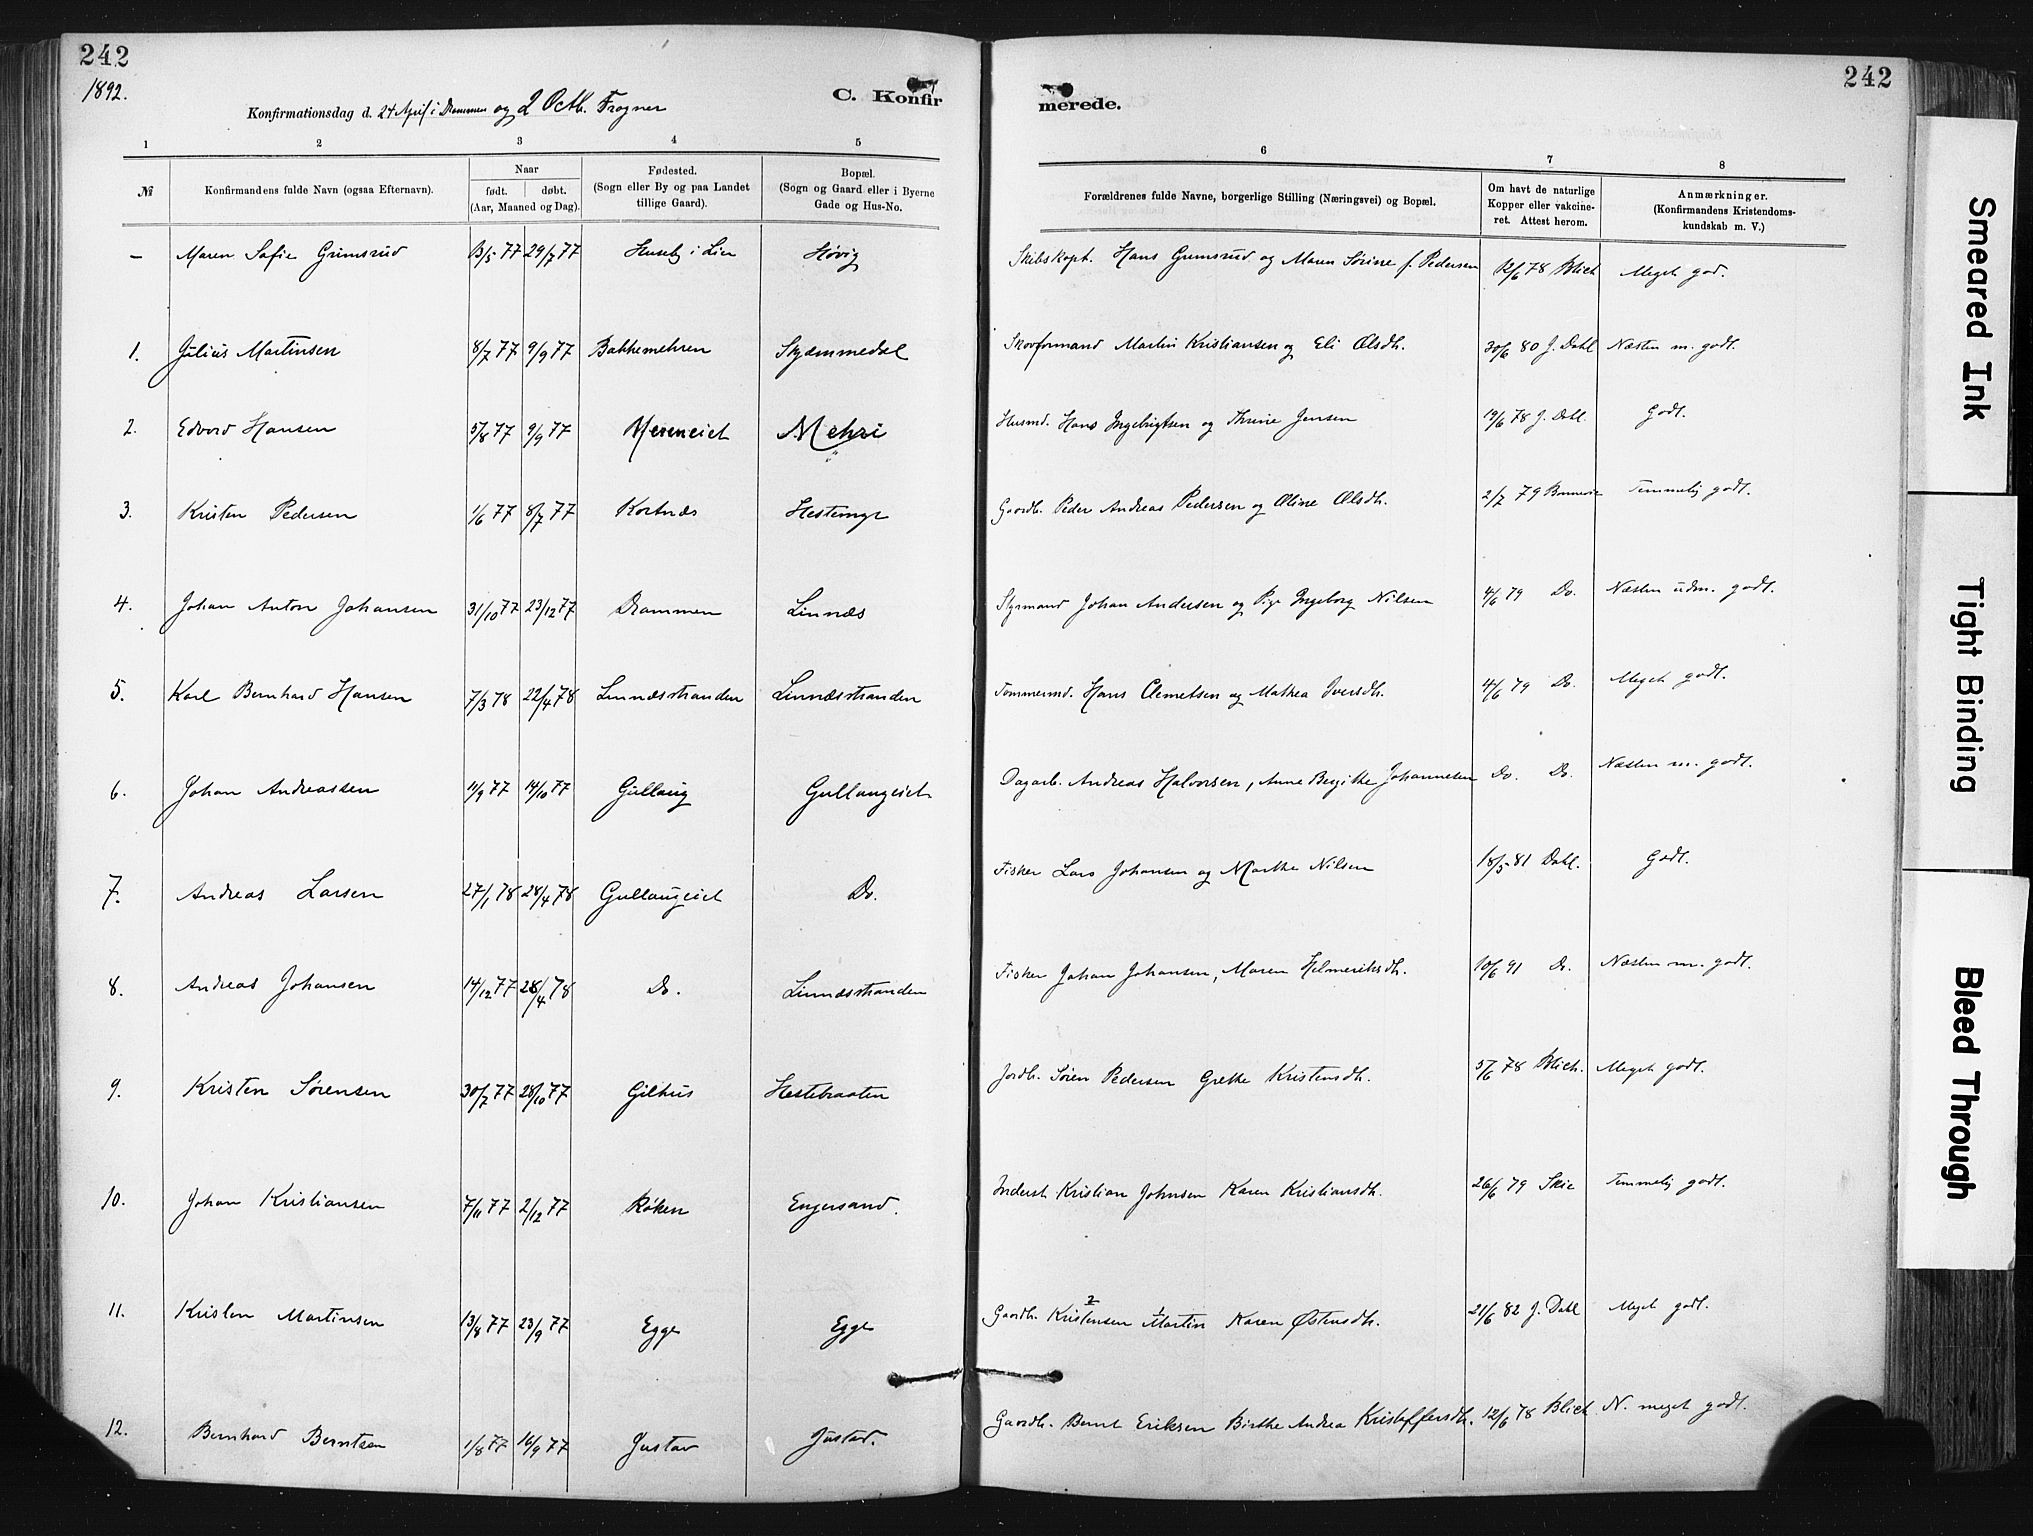 242
242
1892.
Konfirmationsdag d. 24 April i Drammen og 2 Octb. Frogner
C. Konfir
merede.
1 2 3 4 5 6 7 8
№ Konfirmandens fulde Navn (ogsaa Efternavn).
Naar
født. døbt.
(Aar, Maaned og Dag).
Fødested.
(Sogn eller By og paa Landet
tillige Gaard).
Bopæl.
(Sogn og Gaard eller i Byerne
Gade og Hus-No.
Forældrenes fulde Navne, borgerlige Stilling (Næringsvei) og Bopæl.
Om havt de naturlige
Kopper eller vakcine-
ret. Attest herom.
Anmærkninger.
(Konfirmandens Kristendoms-
kundskab m. V.)
– Maren Sofie Grimsrud 13/5 77 29/7 77 Huseby i Lier Høvig Skibskapt. Hans Grimsrud og Maren Sørine f. Pedersen 12/6 78 Blich Meget god.
1. Julius Martinsen 8/7 77 9/9 77 Bakkemehren Skjæmmedal Skovformand Martin Kristiansen og Eli Olsdh. 30/6 80 J. Dahl Næsten m. godt.
2. Edvard Hansen 5/8 77 9/9 77 Mereneiet Mehri „ Husmd. Hans Ingebrigtsen og Thrine Jensen 19/6 78 J. Dahl. Godt.
3. Kristen Pedersen 1/6 77 8/7 77 Kortnæs Hestemyr Gaardb. Peder Andreas Pedersen og Oline Olsdh. 2/7 79 Bonnevie Temmelig godt.
4. Johan Anton Johansen 31/10 77 23/12 77 Drammen Linnæs Styrmand Johan Andersen og Pige Ingeborg Nilsen 4/6 79 Do. Næsten udm. godt.
5. Karl Bernhard Hansen 7/3 78 22/4 78 Linnæsstranden Linnæsstranden Tømmermd. Hans Clemetsen og Mathea Iversdh. 4/6 79 Do. Meget godt.
6. Johan Andreassen 11/9 77 14/10 77 Gullaug Gullaugeiet Dagarb. Andreas Halvorsen, Anne Birgitte Johannesen Do. Do. Næsten m. godt.
7. Andreas Larsen 27/1 78 28/4 78 Gullaugeiet Do. Fisker Lars Johansen og Marthe Nilsen 18/5 81 Dahl. Godt.
8. Andreas Johansen 14/12 77 28/4 78 Do. Linnæsstranden Fisker Johan Johansen, Maren Helmeriksdh. 10/6 91 Do. Næsten m. godt.
9. Kristen Sørensen 30/7 77 28/10 77 Gilhus Hestebraaten Jordb. Søren Pedersen Grethe Kristensdh. 5/6 78 Blich. Meget godt.
10. Johan Kristiansen 7/11 77 2/12 77 Røken Engersand. Inderst Kristian Johnsen Karen Kristiansdh. 26/6 79 Skie Temmelig godt.
11. Kristen Martinsen 13/8 77 23/9 77 Egge Egge Gaardb. Kristensen 2 Martin 1 Karen Østensdh. 21/6 82 J. Dahl Meget godt.
12. Bernhard Berntsen 1/8 77 16/9 77 Justad Justad. Gaardb. Bernt Eriksen Birthe Andrea Kristoffersdh. 12/6 78 Blich N. meget godt.
Smeared Ink
Tight Binding
Bleed Through